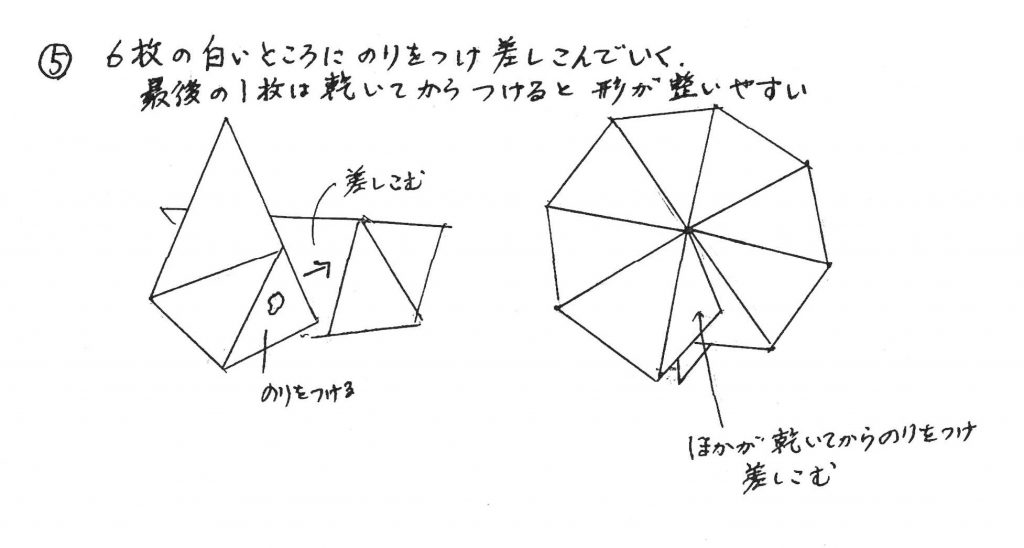 ⑤ 6枚の白いところにのりをつけ差しこんでいく.
最後の1枚は乾いてからつけると形が整いやすい
差しこむ
のりをつける
ほかが乾いてからのりをつけ
差しこむ